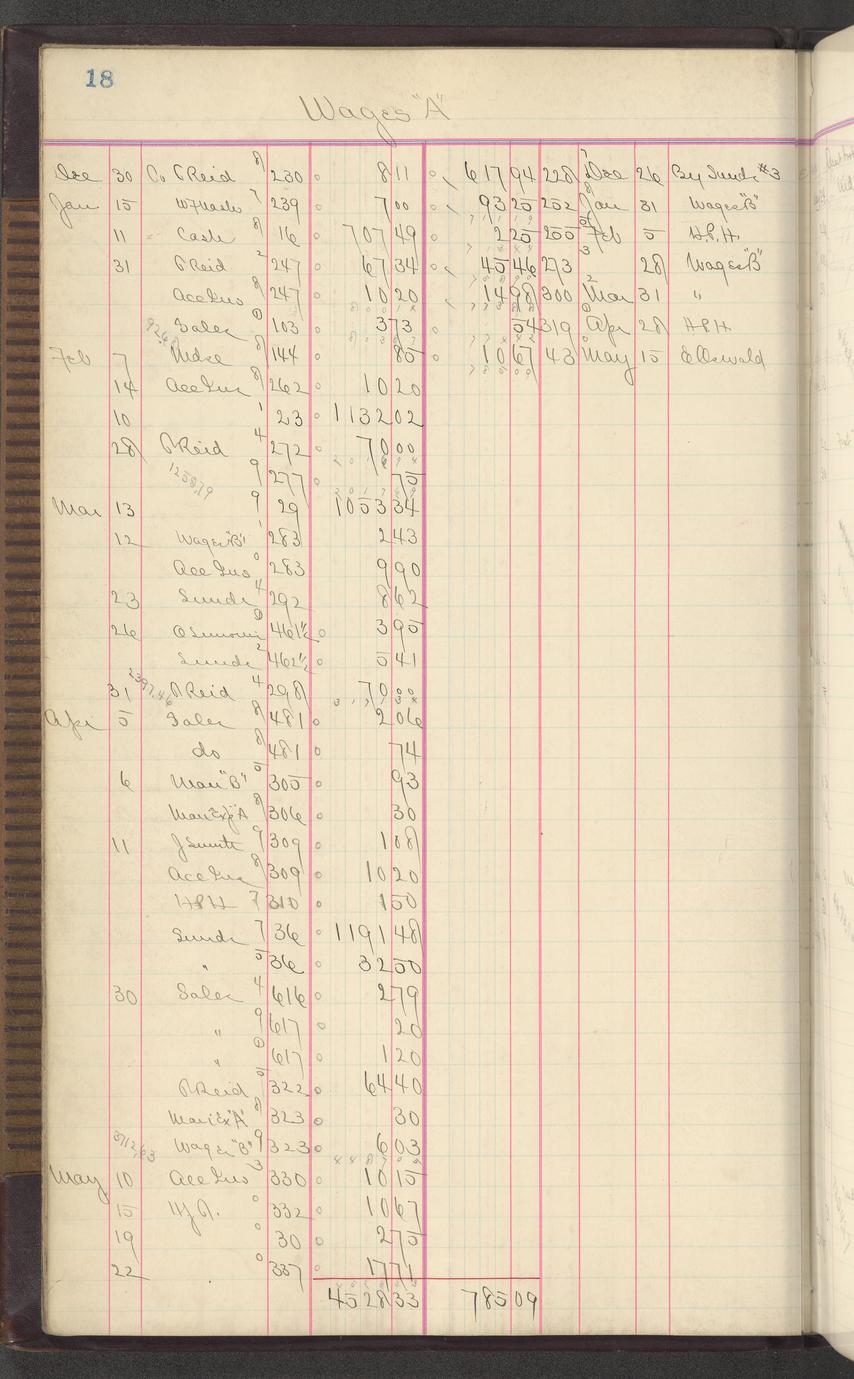 18
Wages "A"
Dec 30 Co P Reid 8 230 8 11 617 94 228 7 Dec 26 By Sunds #3
Jan 15 7 239 7 00 93 25 252 8 Jan 31 Wages "B"
11 Cash 8 16 707 49 2 25 255 Feb 5 H.P.H.
31 P Reid 2 247 67 34 45 46 273 3 28 Wages "B"
Acc Ins 8 247 10 20 14 98 300 2 Mar 31 "
Sales 103 3 73 54 319 Apr 28 H P H
Feb 7 Mdse 8 144 85 10 67 43 May 15 E Oswald
14 Acc Ins 8 262 10 20
10 1 23 1132 02
28 P Reid 4 272 70 00
1258.79 9 277 75
Mar 13 9 29 1053 34
12 Wages "B" 1 283 2 43
Acc Ins 0 283 9 90
23 Sunds 4 292 8 62
26 461½ 3 95
Sunds 2 462½ 5 41
31 2397.46 P Reid 4 298 70 00
Apr 5 Sales 8 481 2 06
do 8 481 74
6 Man "B" 5 305 93
Man Exp "A" 8 306 30
11 J Smith 9 309 1 08
Acc Ins 8 309 10 20
H P H 7 310 1 50
Sunds 7 36 1191 48
" 5 36 32 50
30 Sales 4 616 2 79
" 9 617 20
" 617 1 20
P Reid 5 322 64 40
Man Ex "A" 8 323 30
3712.63 Wages "B" 9 323 6 03
May 10 Acc Ins 3 330 10 15
15 0 332 10 67
19 0 30 2 75
22 0 337 17 71
4528 33 785 09